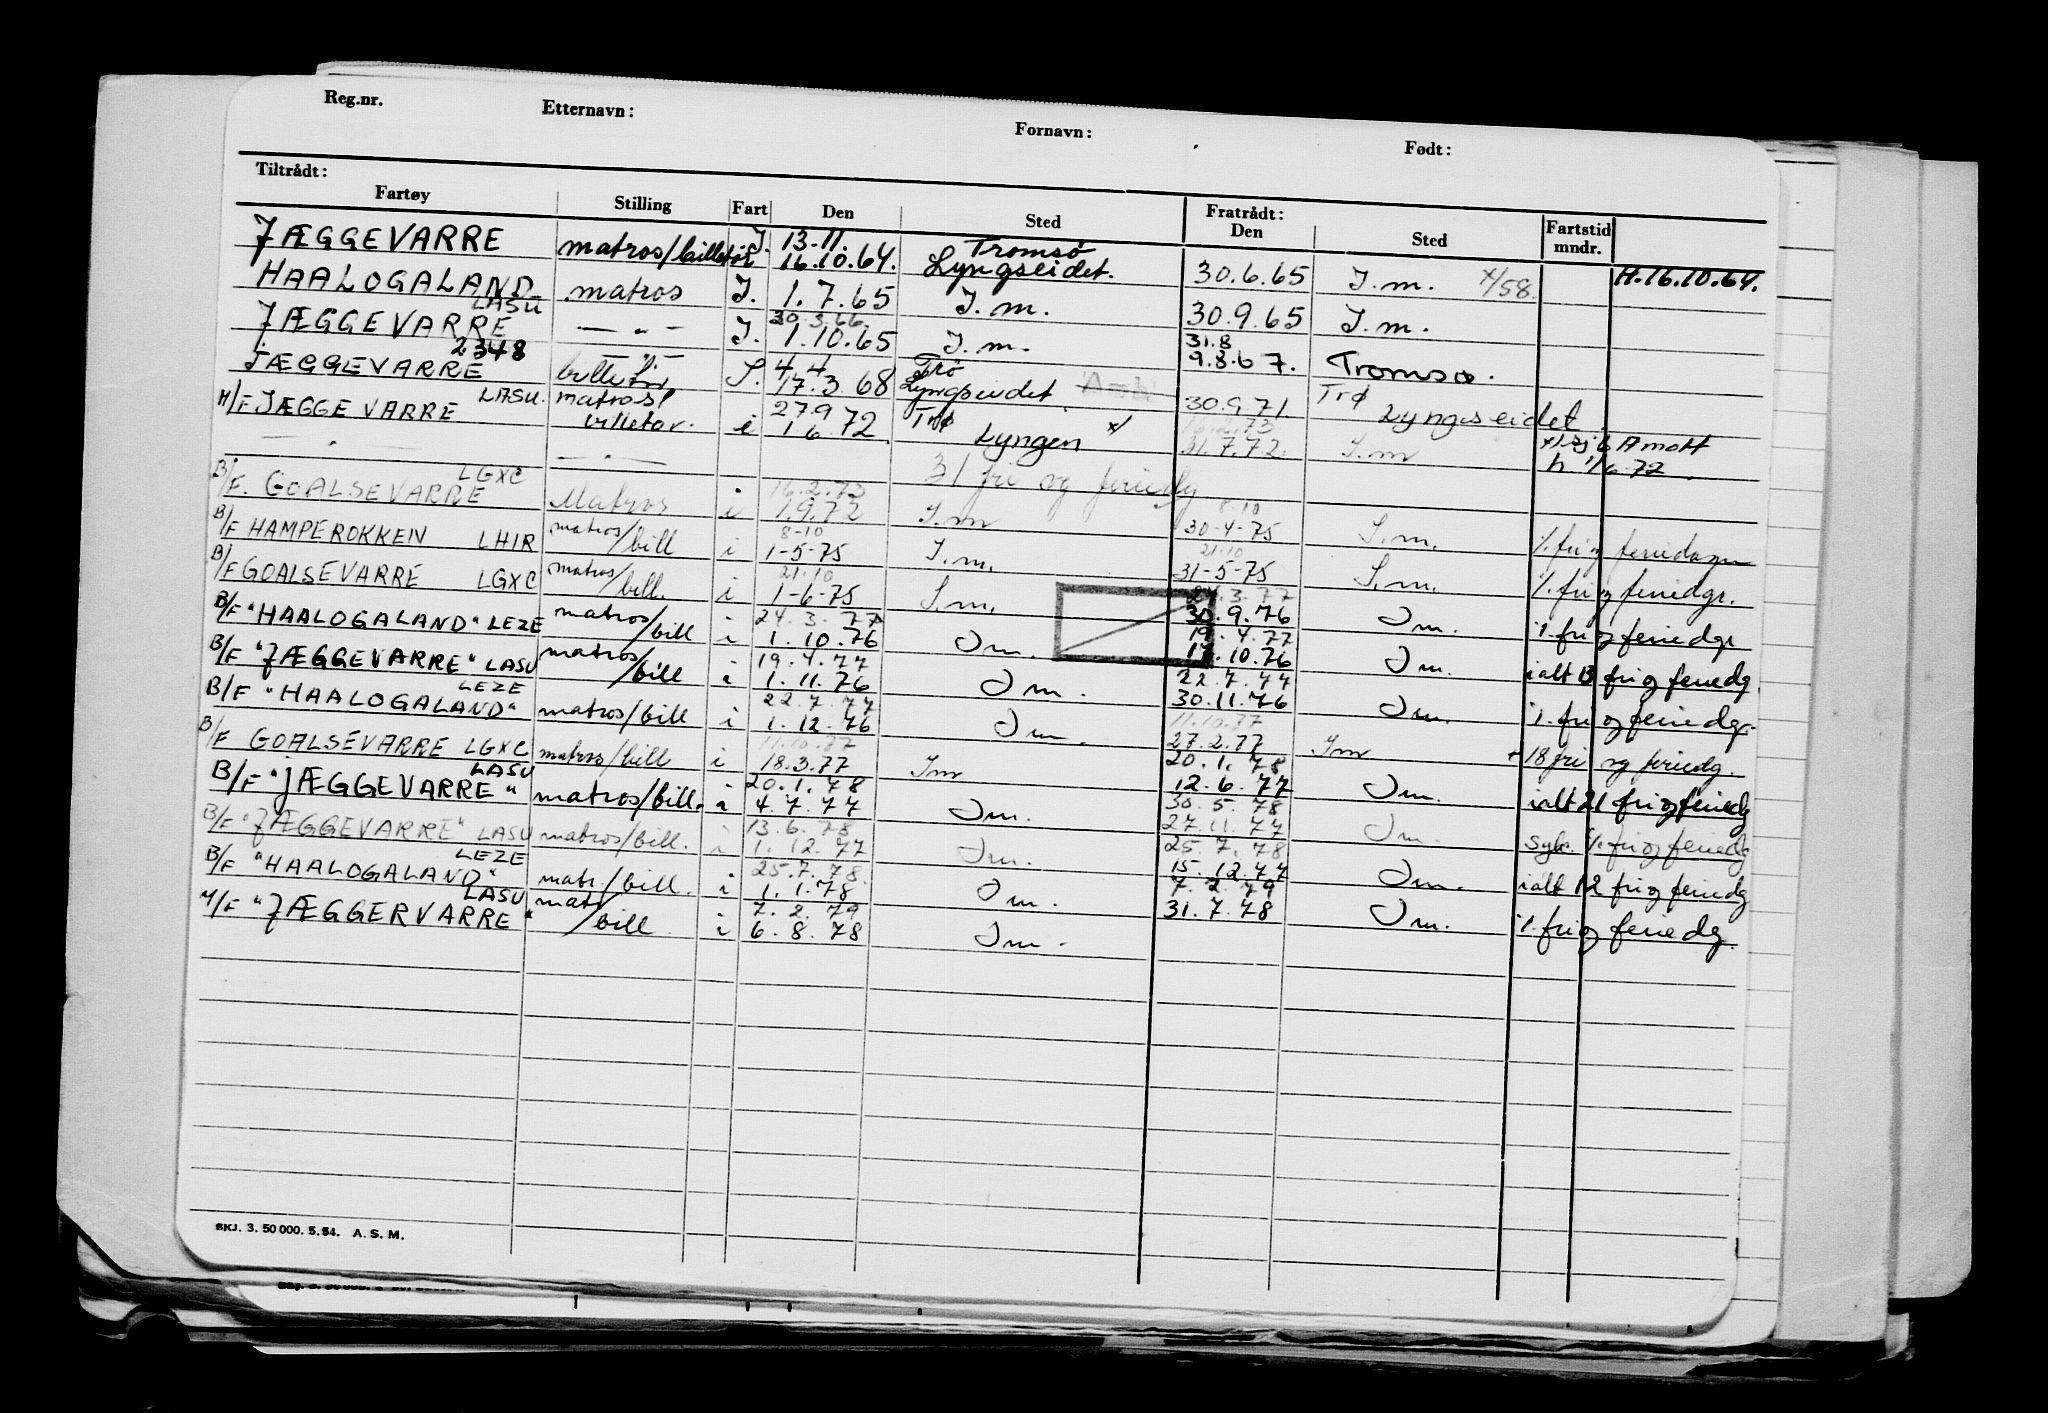 Reg.nr. Etternavn: Fornavn: Født:
Tiltrådt: Fratrådt:
Fartøy Stilling Fart Den Sted Den Sted Fartstid mndr.
JÆGGEVARRE matros/billetør J. 13-11. 16.10.64. Tromsø Lyngseidet. 30.6.65 J.m. x/58. H.16.10.64.
HAALOGALAND matros J. 1.7.65 J.m. 30.9.65 J.m.
JÆGGEVARRE LASU — " — J. 30.3.66. 1.10.65 J.m. 31.8 9.8.67. Tromsø.
JÆGGEVARRE 2348 — " — billetør S. 4.4 17.3.68 Trø Lyngseidet 30.9.71. Trø Lyngseidet
M/F JÆGGEVARRE LASU. matros/ billetør. i 27.9 1.6.72 Trø Lyngen x/ 16.2.73 31.7.72. J.m x/ A mott
— " — — " — 31 fri og feriedg h 1/6-72.
B/F. GOALSEVARRE LGXC Matros i 16.2.73 1.9.72 J.m 8-10 30-4-75 J.m. %fri og feriedager
B/F HAMPEROKKEN LHIR matros/bill i 8-10 1-5-75 J.m. 21.10 31-5-75 J.m. %fri og feriedgr.
B/F GOALSEVARRE LGXC matros/bill. i 21.10 1-6-75 J.m. 24.3.77 30.9.76 Jm. %fri og feriedgr
B/F "HAALOGALAND" LEZE matros/bill i 24.3.77 1.10.76 Jm. 19.4.77 17.10.76 Jm. ialt 13 fri og feriedg.
B/F "JÆGGEVARRE" LASU matros/bill i 19.4.77 1.11.76 Jm. 22.7.77 30.11.76 Jm. %fri og feriedgr.
B/F "HAALOGALAND" LEZE matros/bill i 22.7.77 1.12.76 Jm. 11.10.77 27.2.77 Jm + 18 fri og feriedg.
B/F GOALSEVARRE LGXC matros/bill i 11.10.77 18.3.77 Jm 20.1.78 12.6.77 Jm. ialt 21 fri og feriedg
B/F "JÆGGEVARRE" LASU matros/bill. i 20.1.78 4.7.77 Jm. 30.5.78 27.11.77 Jm. syk. %fri og feriedg
B/F "JÆGGEVARRE" LASU matros/bill. i 13.6.78 1.12.77 Jm. 25.7.78 15.12.77 Jm. ialt 12 fri og feriedg
B/F "HAALOGALAND" LEZE matr/bill. i 25.7.78 1.1.78 Jm. 7.2.79 31.7.78 Jm. %fri og feriedg.
M/F "JÆGGERVARRE" LASU matr/bill i 7.2.79 6.8.78 Jm.
SKJ. 3. 50 000. 5. 54. A. S. M.